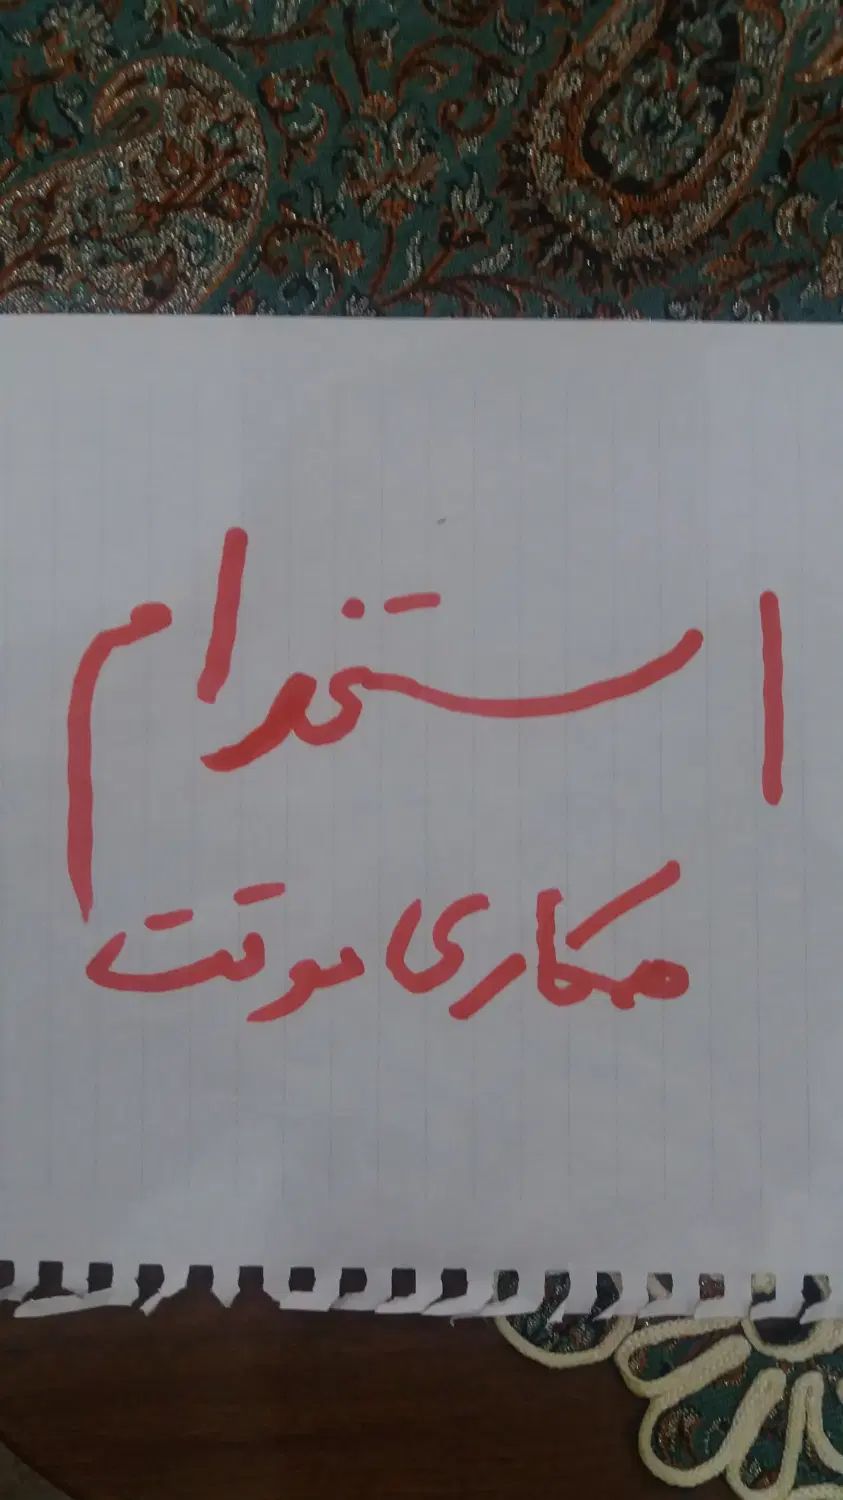 استخدام
همکاری موقت